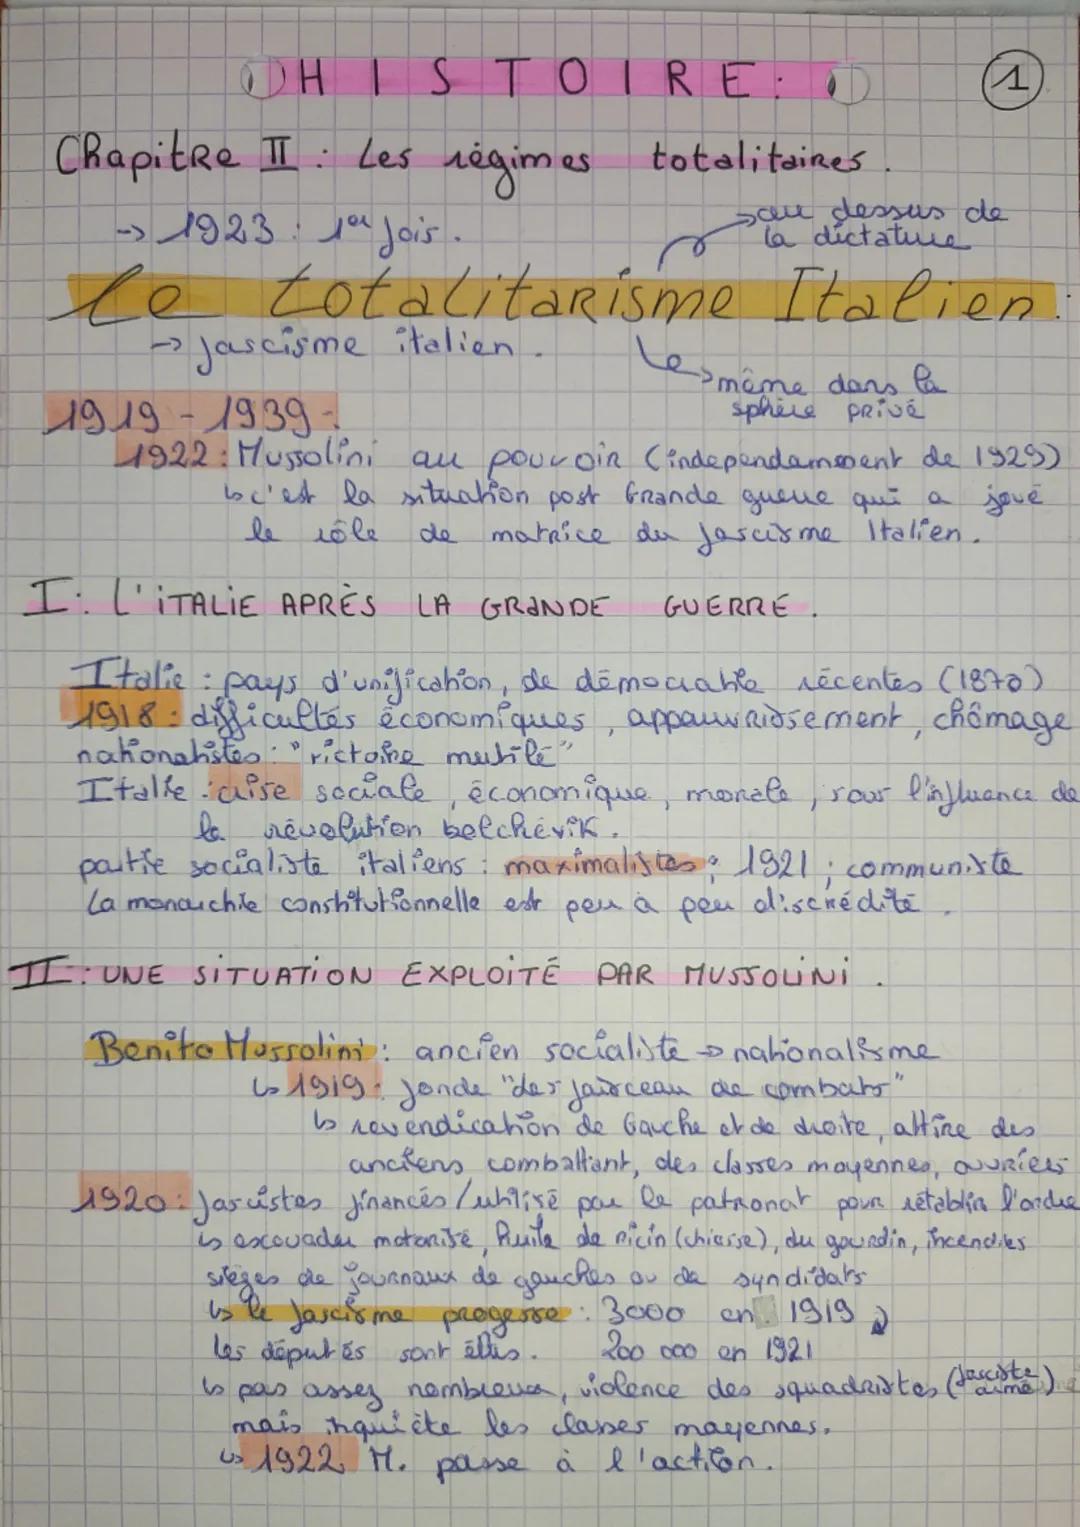 HISTOIRE:
1
Chapitre II : Les régimes totalitaires.
→ 1923 : 1er fois.
au dessus de
la dictature
Le totalitarisme Italien:
→ fascisme italien.
même dans la
sphère privé
1919 - 1939 -
1922 : Mussolini au pouvoir (indépendamment de 1929)
↳ c'est la situation post Grande guerre qui a joué
le rôle de matrice du fascisme Italien.
I: L'ITALIE APRÈS LA GRANDE GUERRE.
Italie : pays d'unification, de démocratie récentes (1870)
1918 : difficultés économiques, appauvrissement, chômage
nationalistes : "victoire mutilé"
Italie : crise sociale, économique, morale, sous l'influence de
la révolution bolchévik.
partie socialiste italiens : maximalistes ; 1921 ; communiste
La monarchie constitutionnelle est peu à peu discrédité.
II : UNE SITUATION EXPLOITÉ PAR MUSSOLINI.
Benito Mussolini : ancien socialiste → nationalisme
↳ 1919 : fonde "des faisceau de combats"
↳ revendication de Gauche et de droite, attire des
anciens combattant, des classes moyennes, ouvriers
1920 : fascistes financés / utilisé par le patronat pour rétablir l'ordre
↳ escouader motorisé, huile de ricin (chiasse), du gourdin, incendies
sièges de journaux de gauches ou de syndidats
↳ le fascisme progesse : 3000 en 1919
les députés sont élus. 200 000 en 1921
↳ pas assez nombreux, violence des squadristes (fasciste armé)
mais inquiète les classes moyennes.
↳ 1922 M. passe à l'action.